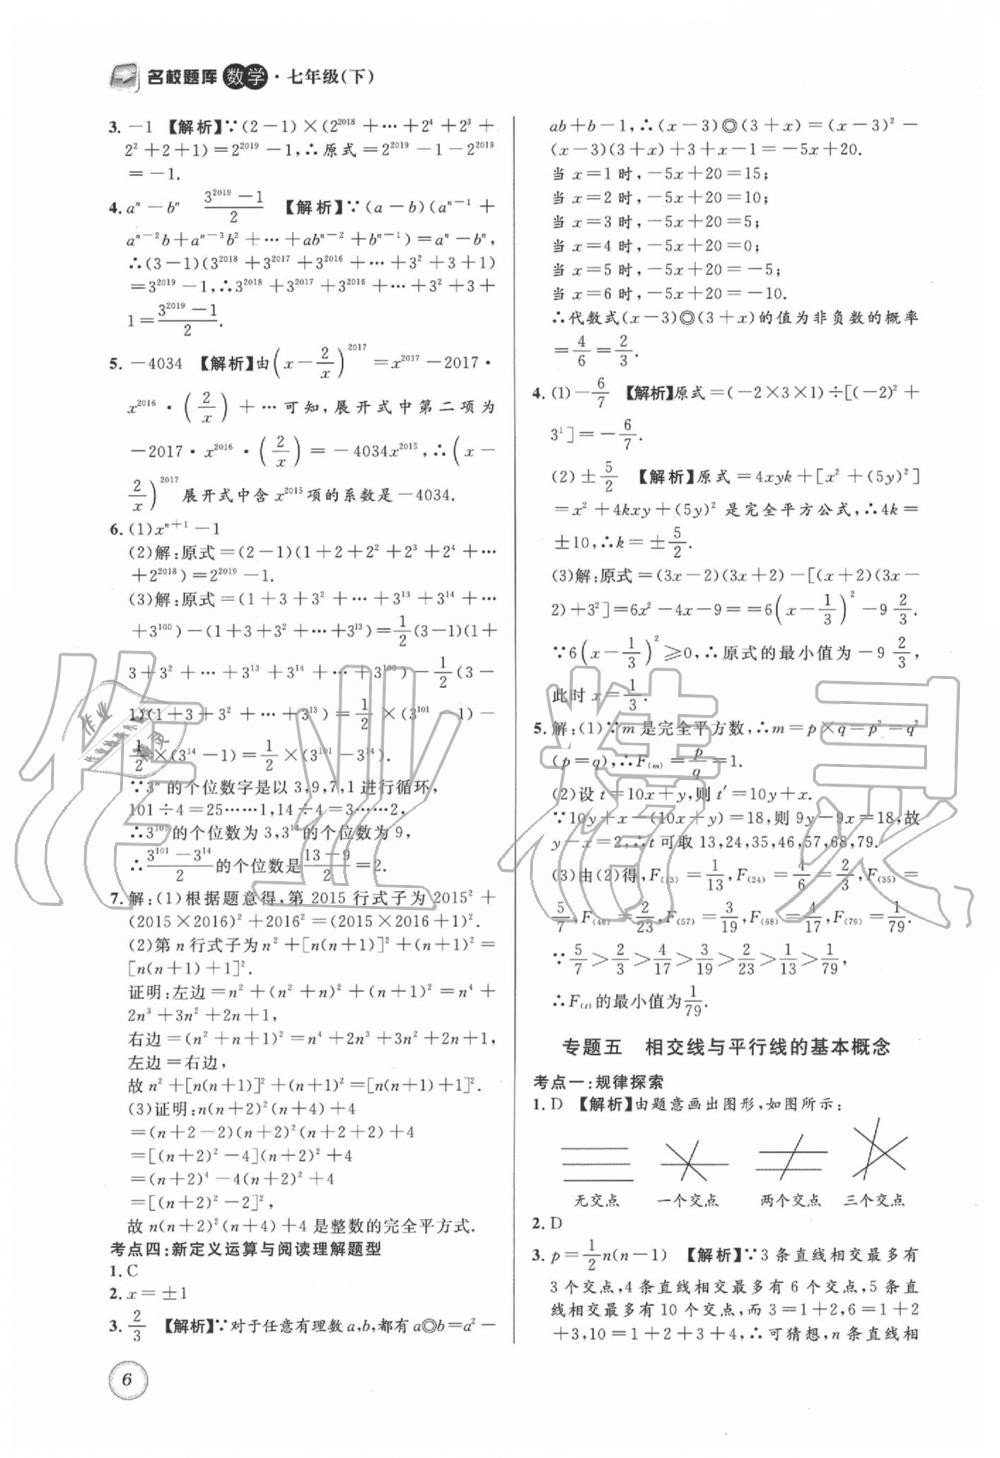 名校题库 数学·七年级(下)
3. －1 【解析】∵(2－1)×(2²⁰¹⁸＋…＋2⁴＋2³＋
2²＋2＋1)＝2²⁰¹⁹－1,∴原式＝2²⁰¹⁹－1－2²⁰¹⁹
＝－1.
4. aⁿ－bⁿ (3²⁰¹⁹－1)/2 【解析】∵(a－b)(aⁿ⁻¹＋
aⁿ⁻²b＋aⁿ⁻³b²＋…＋abⁿ⁻²＋bⁿ⁻¹)＝aⁿ－bⁿ,
∴(3－1)(3²⁰¹⁸＋3²⁰¹⁷＋3²⁰¹⁶＋…＋3²＋3＋1)
＝3²⁰¹⁹－1,∴3²⁰¹⁸＋3²⁰¹⁷＋3²⁰¹⁶＋…＋3²＋3＋
1＝(3²⁰¹⁹－1)/2.
5. －4034 【解析】由(x－2/x)²⁰¹⁷＝x²⁰¹⁷－2017·
x²⁰¹⁶·(2/x)＋…可知,展开式中第二项为
－2017·x²⁰¹⁶·(2/x)＝－4034x²⁰¹⁵,∴(x－
2/x)²⁰¹⁷展开式中含x²⁰¹⁵项的系数是－4034.
6. (1)xⁿ⁺¹－1
(2)解:原式＝(2－1)(1＋2＋2²＋2³＋2⁴＋…
＋2²⁰¹⁸)＝2²⁰¹⁹－1.
(3)解:原式＝(1＋3＋3²＋…＋3¹³＋3¹⁴＋…
＋3¹⁰⁰)－(1＋3＋3²＋…＋3¹³)＝1/2(3－1)(1＋
3＋3²＋…＋3¹³＋3¹⁴＋…＋3¹⁰⁰)－1/2(3－
1)(1＋3＋3²＋…＋3¹³)＝1/2×(3¹⁰¹－1)－
1/2×(3¹⁴－1)＝1/2×(3¹⁰¹－3¹⁴)
∵3ⁿ的个位数字是以3,9,7,1进行循环,
101÷4＝25……1,14÷4＝3……2,
∴3¹⁰¹的个位数为3,3¹⁴的个位数为9,
∴(3¹⁰¹－3¹⁴)/2的个位数是(13－9)/2＝2.
7. 解:(1)根据题意得,第2015行式子为2015²＋
(2015×2016)²＋2016²＝(2015×2016＋1)².
(2)第n行式子为n²＋[n(n＋1)]²＋(n＋1)²＝
[n(n＋1)＋1]².
证明:左边＝n²＋(n²＋n)²＋(n＋1)²＝n⁴＋
2n³＋3n²＋2n＋1,
右边＝(n²＋n＋1)²＝n⁴＋2n³＋3n²＋2n＋1,
左边＝右边,
故n²＋[n(n＋1)]²＋(n＋1)²＝[n(n＋1)＋1]².
(3)证明:n(n＋2)²(n＋4)＋4
＝(n＋2－2)(n＋2)²(n＋2＋2)＋4
＝[(n＋2)²－4](n＋2)²＋4
＝(n＋2)⁴－4(n＋2)²＋4
＝[(n＋2)²－2]²,
故n(n＋2)²(n＋4)＋4是整数的完全平方式.
考点四:新定义运算与阅读理解题型
1. C
2. x＝±1
3. 2/3 【解析】∵对于任意有理数a,b,都有a◎b＝a²－
ab＋b－1,∴(x－3)◎(3＋x)＝(x－3)²－
(x－3)(3＋x)＋3＋x－1＝－5x＋20.
当x＝1时,－5x＋20＝15;
当x＝2时,－5x＋20＝10;
当x＝3时,－5x＋20＝5;
当x＝4时,－5x＋20＝0;
当x＝5时,－5x＋20＝－5;
当x＝6时,－5x＋20＝－10.
∴代数式(x－3)◎(3＋x)的值为非负数的概率
＝4/6＝2/3.
4. (1)－6/7 【解析】原式＝(－2×3×1)÷[(－2)²＋
3¹]＝－6/7.
(2)±5/2 【解析】原式＝4xyk＋[x²＋(5y)²]
＝x²＋4kxy＋(5y)²是完全平方公式,∴4k＝
±10,∴k＝±5/2.
(3)解:原式＝(3x－2)(3x＋2)－[(x＋2)(3x－
2)＋3²]＝6x²－4x－9＝＝6(x－1/3)²－9 2/3.
∵6(x－1/3)²≥0,∴原式的最小值为－9 2/3,
此时x＝1/3.
5. 解:(1)∵m是完全平方数,∴m＝p×q＝p²＝q²
(p＝q),∴F₍ₘ₎＝p/q＝1.
(2)设t＝10x＋y,则t′＝10y＋x.
∵10y＋x－(10x＋y)＝18,则9y－9x＝18,故
y－x＝2,∴t可取13,24,35,46,57,68,79.
(3)由(2)得,F₍₁₃₎＝1/13,F₍₂₄₎＝4/6＝2/3,F₍₃₅₎＝
5/7,F₍₄₆₎＝2/23,F₍₅₇₎＝3/19,F₍₆₈₎＝4/17,F₍₇₉₎＝1/79.
∵5/7＞2/3＞4/17＞3/19＞2/23＞1/13＞1/79,
∴F₍ₜ₎的最小值为1/79.
专题五 相交线与平行线的基本概念
考点一:规律探索
1. D 【解析】由题意画出图形,如图所示:
无交点 一个交点 两个交点 三个交点
2. D
3. p＝1/2n(n－1) 【解析】∵3条直线相交最多有
3个交点,4条直线相交最多有6个交点,5条直
线相交最多有10个交点,而3＝1＋2,6＝1＋2
＋3,10＝1＋2＋3＋4,∴可猜想,n条直线相
6
作业精灵
作业
精灵